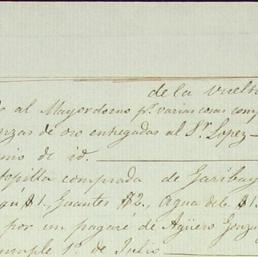 de la vuelta
al Mayordomo pr. varias cosas comp
onzas de oro entregadas al Sr. Lopez
de id.
opilla comprada de Garibay
$1., Guantes $2., Agua de la $1.
por un pagaré de Agüero Gonza
cumple 1º de Julio